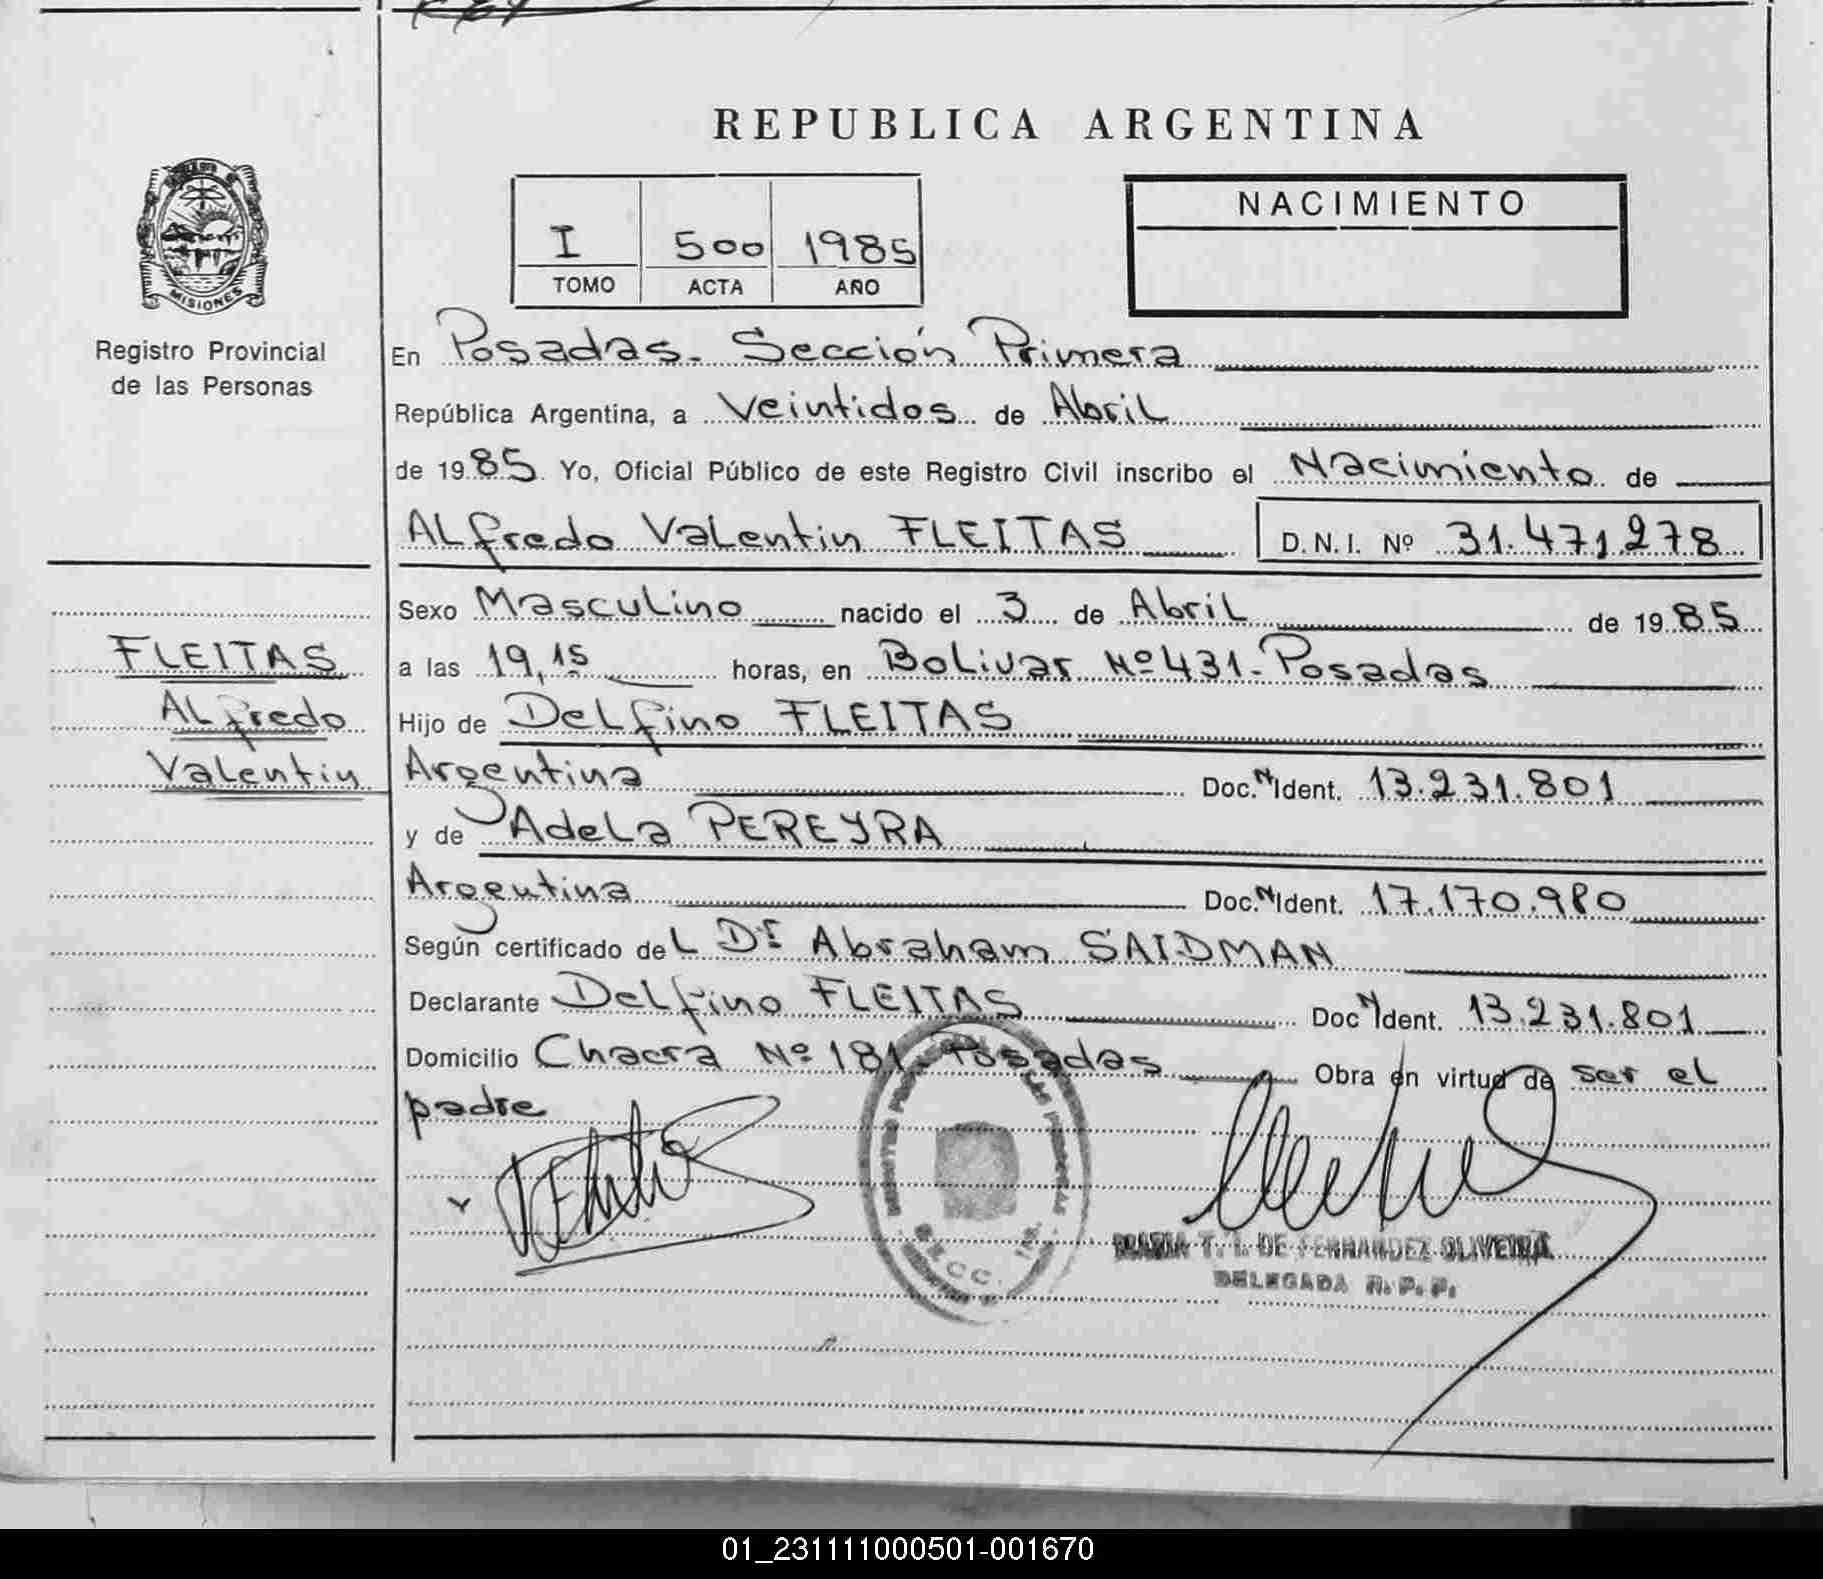 REPUBLICA ARGENTINA
I 500 1985
TOMO ACTA AÑO
NACIMIENTO
MISIONES
Registro Provincial
de las Personas
En Posadas. Sección Primera
República Argentina, a Veintidos de Abril
de 1985. Yo, Oficial Público de este Registro Civil inscribo el Nacimiento de
Alfredo Valentin FLEITAS D.N.I. Nº 31.471.278
Sexo Masculino nacido el 3 de Abril de 1985
a las 19,15 horas, en Bolivar Nº 431-Posadas
Hijo de Delfino FLEITAS
Argentina Doc. N Ident. 13.231.801
y de Adela PEREYRA
Argentina Doc. N Ident. 17.170.980
Según certificado del Dr Abraham SAIDMAN
Declarante Delfino FLEITAS Doc N Ident. 13.231.801
Domicilio Chacra Nº 181 Posadas Obra en virtud de ser el
padre
FLEITAS
Alfredo
Valentin
MARIA T. I. DE FERNANDEZ OLIVEIRA
DELEGADA R. P. P.
01_231111000501-001670